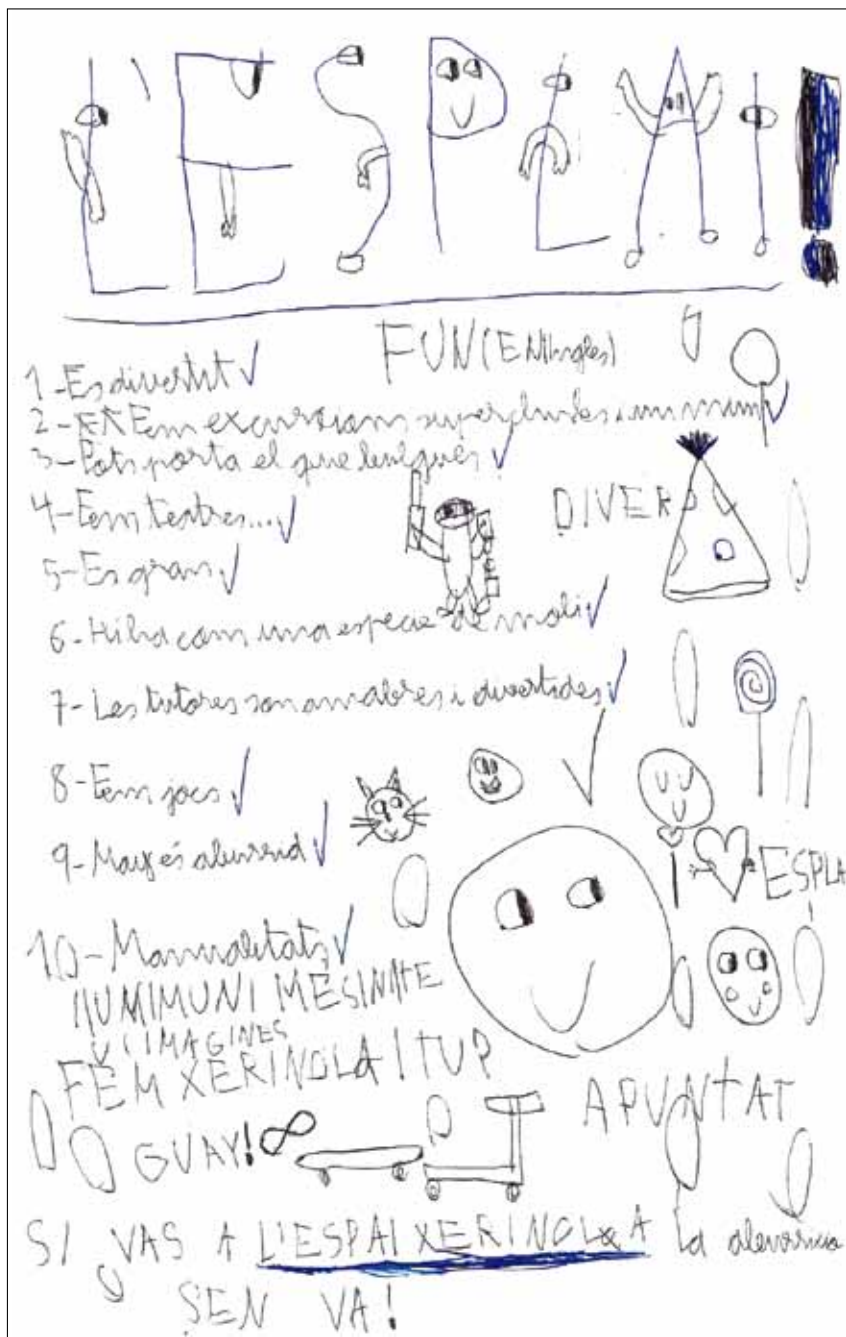 L'ESPLAI!
FUN (EN Ingles)
1-Es divertit
2-Fem excursions super
3-Pots porta el que vulguis
4-Fem teatres...
DIVER
5-Es gran
6-Hiha com una especie de moli
7-Les tutores son amables i divertides
8-Fem jocs
9-May és aburrid
ESPLA
I
10-Manualitats
IMAGINES
FEM XERINOLA I TU?
APUNTAT
GUAY!
SI VAS A L'ESPAI XERINOLA LA
SEN VA!